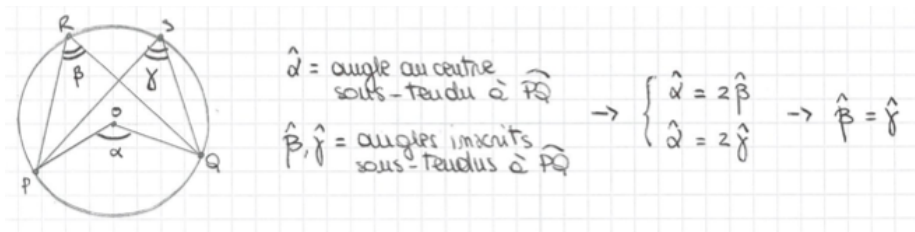 R
S
β
γ
O
α
P
Q
α̂ = angle au centre
sous-tendu à P͡Q
β̂, γ̂ = angles inscrits
sous-tendus à P͡Q
→ { α̂ = 2β̂
α̂ = 2γ̂
→ β̂ = γ̂